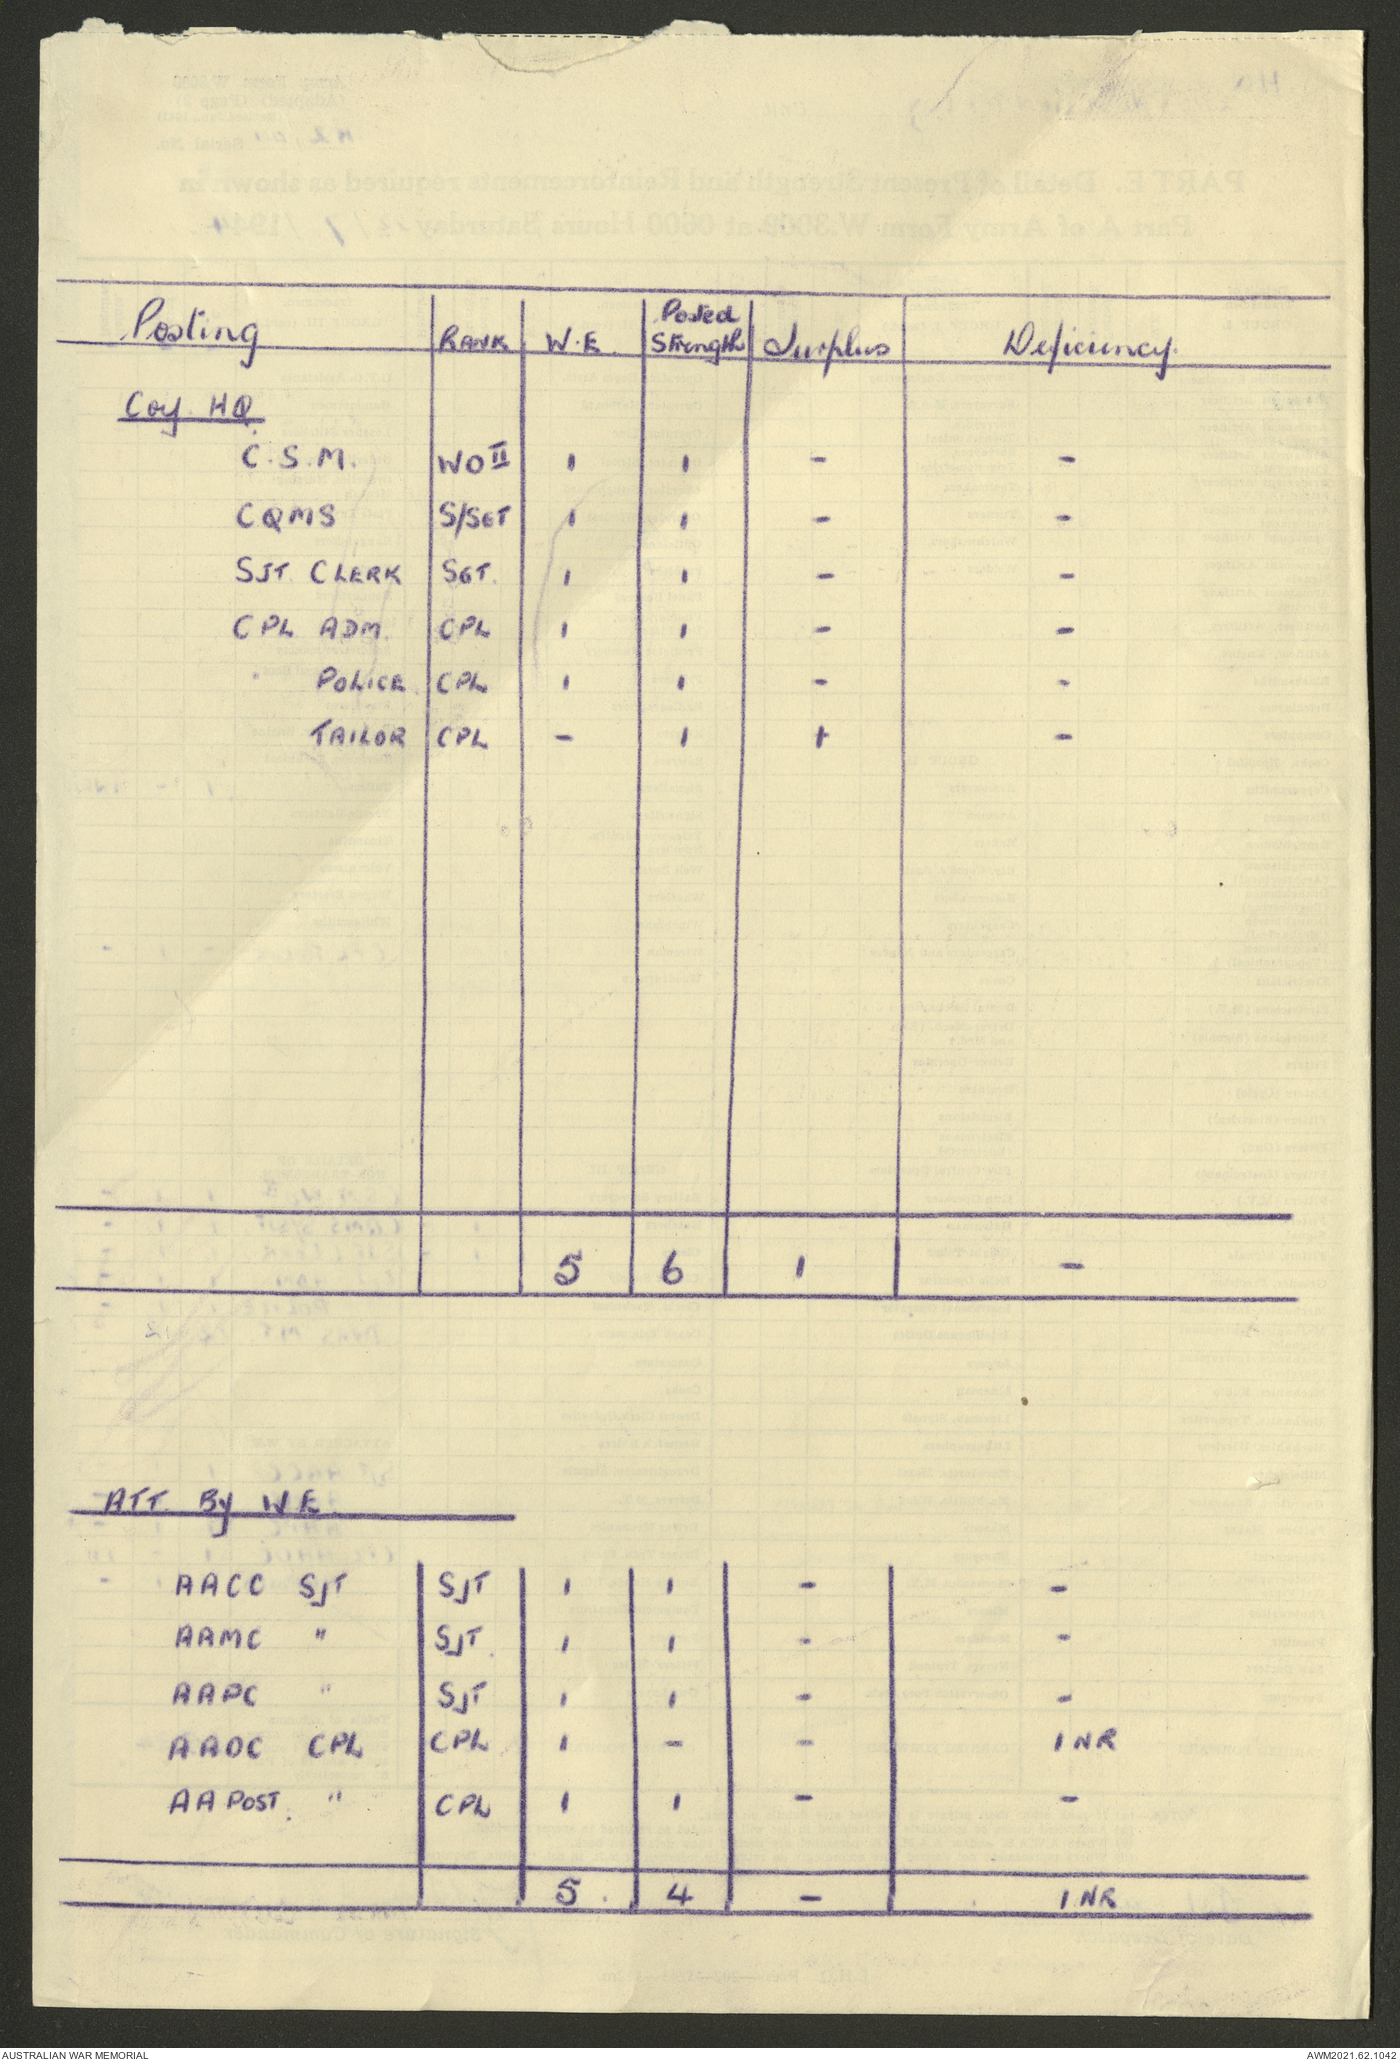 Posting RANK W.E. Posted Strength Surplus Deficiency.
Coy. HQ.
C.S.M. WO II 1 1 - -
CQMS S/SGT 1 1 - -
SJT CLERK SGT. 1 1 - -
CPL ADM. CPL 1 1 - -
" POLICE CPL 1 1 - -
TAILOR CPL - 1 1 -
5 6 1 -
ATT. By W.E.
AACC SJT SJT 1 1 - -
AAMC " SJT. 1 1 - -
AAPC " SJT 1 1 - -
AAOC CPL CPL 1 - - 1 NR
AA POST. " CPL 1 1 - -
5. 4 - 1 NR
AUSTRALIAN WAR MEMORIAL AWM2021.62.1042